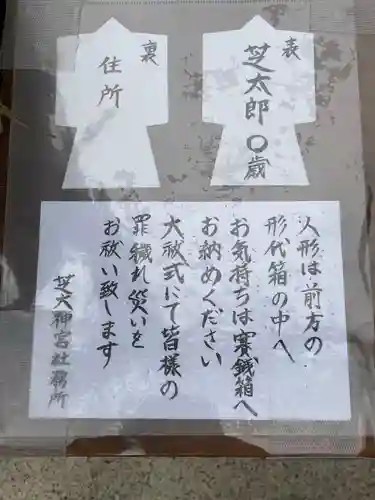 表
芝太郎 〇歳
裏
住所
人形は前方の
形代箱の中へ
お気持ちは賽銭箱へ
お納めください
大祓式にて皆様の
罪穢れ災いを
お祓い致します
芝大神宮社務所